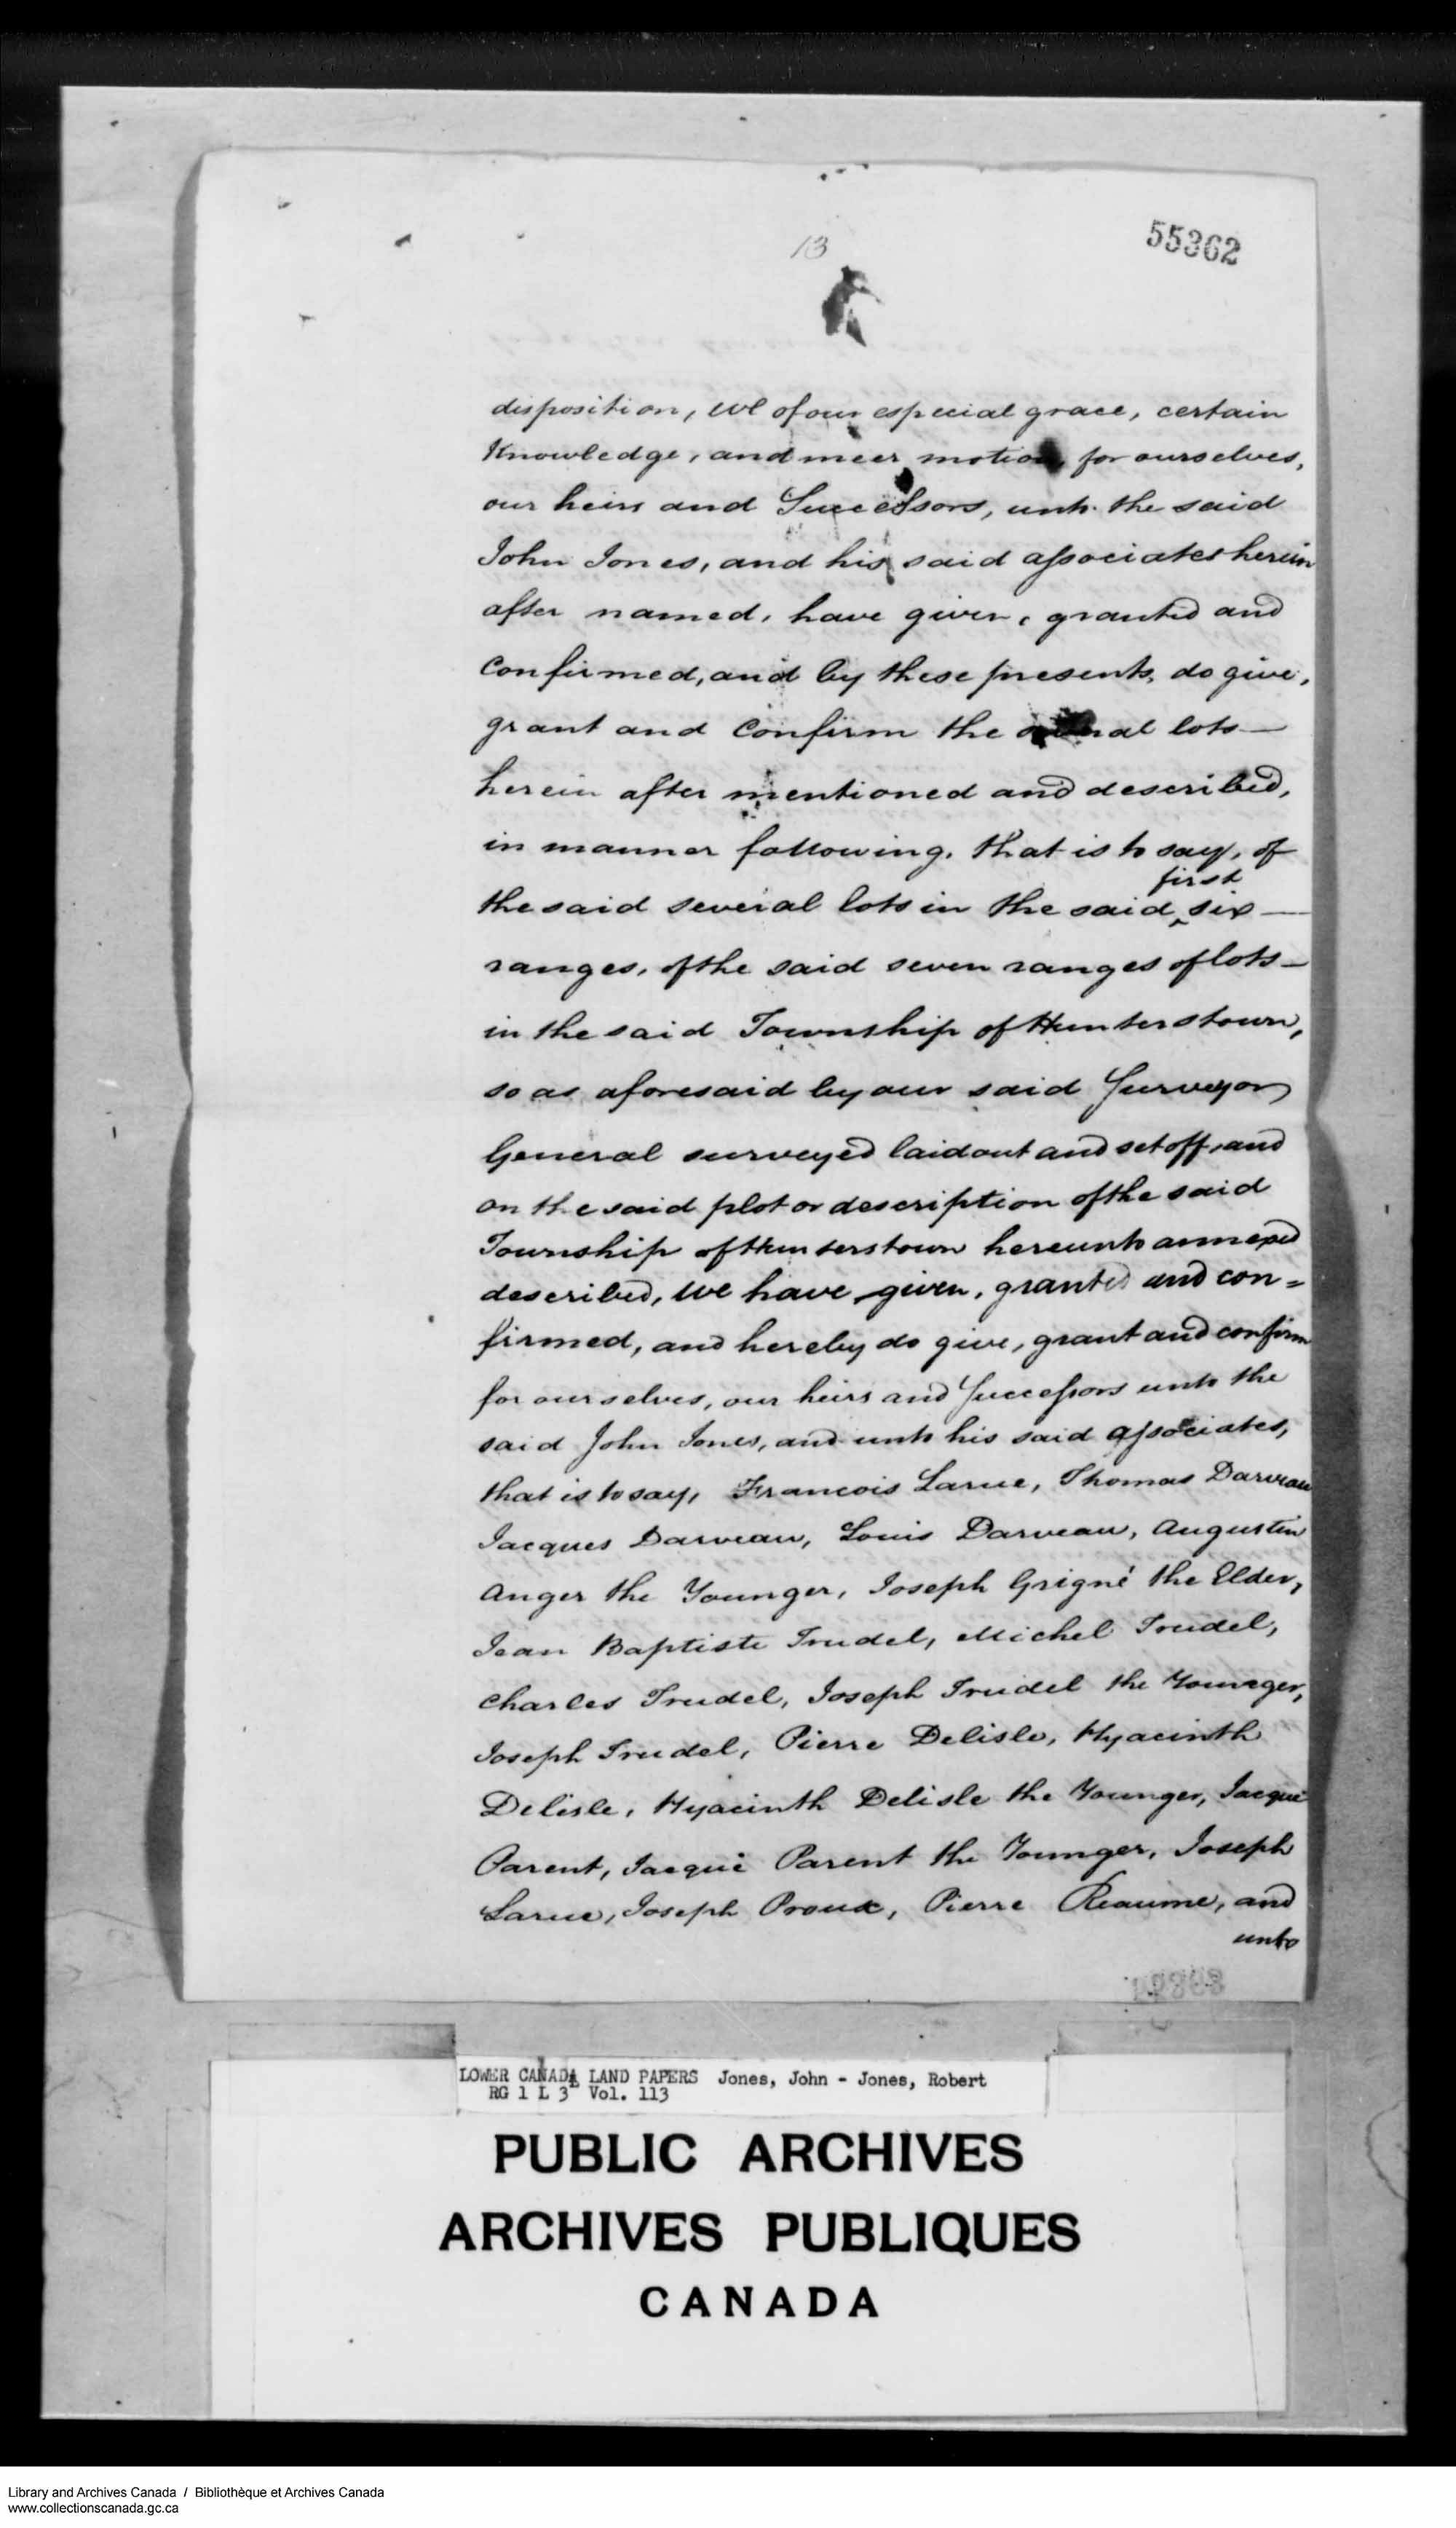 13
55362
disposition, We of our especial grace, certain
Knowledge, and meer motion, for ourselves,
our heirs and Successors, unto the said
John Jones, and his said associates herein
after named, have given, granted and
Confirmed, and by these presents, do give,
grant and Confirm the several lots—
herein after mentioned and described,
in manner following, that is to say, of
first
the said several lots in the said ‸ six —
ranges, of the said seven ranges of lots—
in the said Township of Hunterstown,
so as aforesaid by our said Surveyor
General surveyed laid out and set off, and
on the said plot or description of the said
Township of Hunterstown hereunto annexed
described, We have given, granted and con=
firmed, and hereby do give, grant and confirm
for ourselves, our heirs and Successors unto the
said John Jones, and unto his said associates,
that is to say, Francois Larue, Thomas Darveau
Jacques Darveau, Louis Darveau, Augustin
Anger the Younger, Joseph Grigné the Elder,
Jean Baptiste Trudel, Michel Trudel,
Charles Trudel, Joseph Trudel the Younger,
Joseph Trudel, Pierre Delisle, Hyacinth
Delisle, Hyacinth Delisle the Younger, Jacque
Parent, Jacque Parent the Younger, Joseph
Larue, Joseph Proux, Pierre Reaume, and
unto
LOWER CANADA LAND PAPERS Jones, John - Jones, Robert
RG 1 L 3 Vol. 113
PUBLIC ARCHIVES
ARCHIVES PUBLIQUES
CANADA
Library and Archives Canada / Bibliothèque et Archives Canada
www.collectionscanada.gc.ca